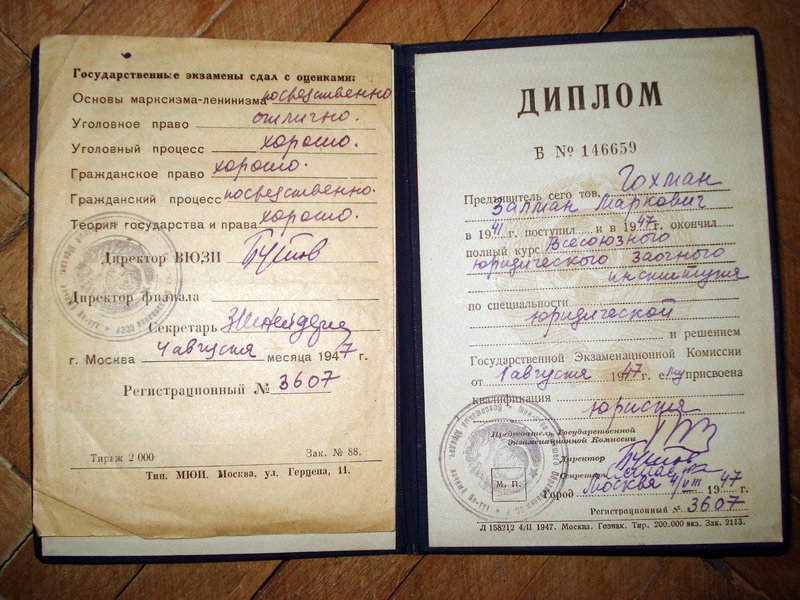 Государственные экзамены сдал с оценками:
Основы марксизма-ленинизма посредственно
Уголовное право отлично.
Уголовный процесс хорошо.
Гражданское право хорошо.
Гражданский процесс посредственно.
Теория государства и права хорошо.
Директор ВЮЗИ
Директор филиала
Секретарь
г. Москва 4 августа месяца 1947 г.
Регистрационный № 3607
Тираж 2 000 Зак. № 88.
Тип. МЮИ. Москва, ул. Герцена, 11.
ДИПЛОМ
Б № 146659
Предъявитель сего тов. Гохман
Залман Маркович
в 1941 г. поступил и в 1947 г. окончил
полный курс Всесоюзного
юридического заочного
института
по специальности
юридической
и решением
Государственной Экзаменационной Комиссии
от 1 августа 1947 г. ему присвоена
квалификация
юриста
Председатель Государственной
Экзаменационной Комиссии
Директор
Секретарь
М. П.
Город Москва 4/VIII 1947 г.
Регистрационный № 3607
Л 158212 4/II 1947. Москва. Гознак. Тир. 200,000 экз. Зак. 2113.